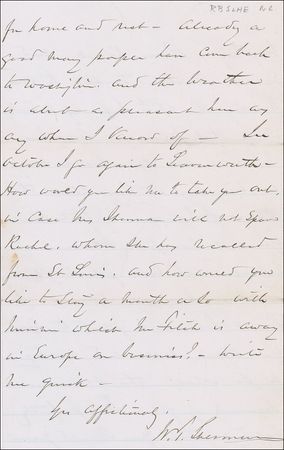 for home and rest - Already a
good many people have come back
to Washgtn. and the weather
is about as pleasant here as
any where I know of - In
October I go again to Leavenworth -
How would you like me to take you out,
in case Mrs Sherman will not spare
Rachel, whom she has recalled
from St Louis. and how would you
like to stay a month or so with
Minnie whilst Mr Fitch is away
in Europe on business? - Write
me quick -
Yrs affectionately.
W. T. Sherman